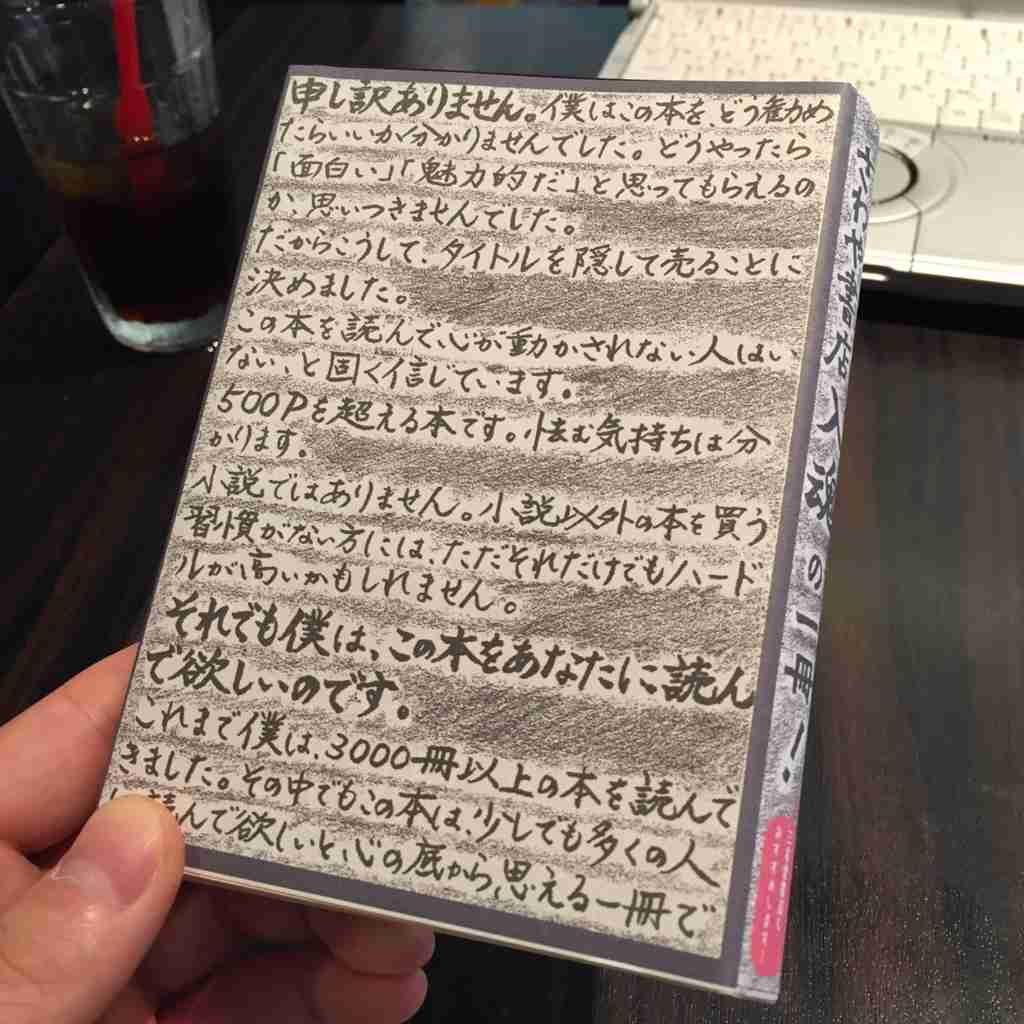 申し訳ありません。僕はこの本をどう勧め
たらいいか分かりませんでした。どうやったら
「面白い」「魅力的だ」と思ってもらえるの
か、思いつきませんでした。
だからこうして、タイトルを隠して売ることに
決めました。
この本を読んで、心が動かされない人はい
ない、と固く信じています。
500Pを超える本です。怯む気持ちは分
かります。
小説ではありません。小説以外の本を買う
習慣がない方には、ただそれだけでもハード
ルが高いかもしれません。
それでも僕は、この本をあなたに読ん
で欲しいのです。
これまで僕は、3000冊以上の本を読んで
きました。その中でもこの本は、少しでも多くの人
読んで欲しいと、心の底から思える一冊で
さわや書店 入魂の一冊!